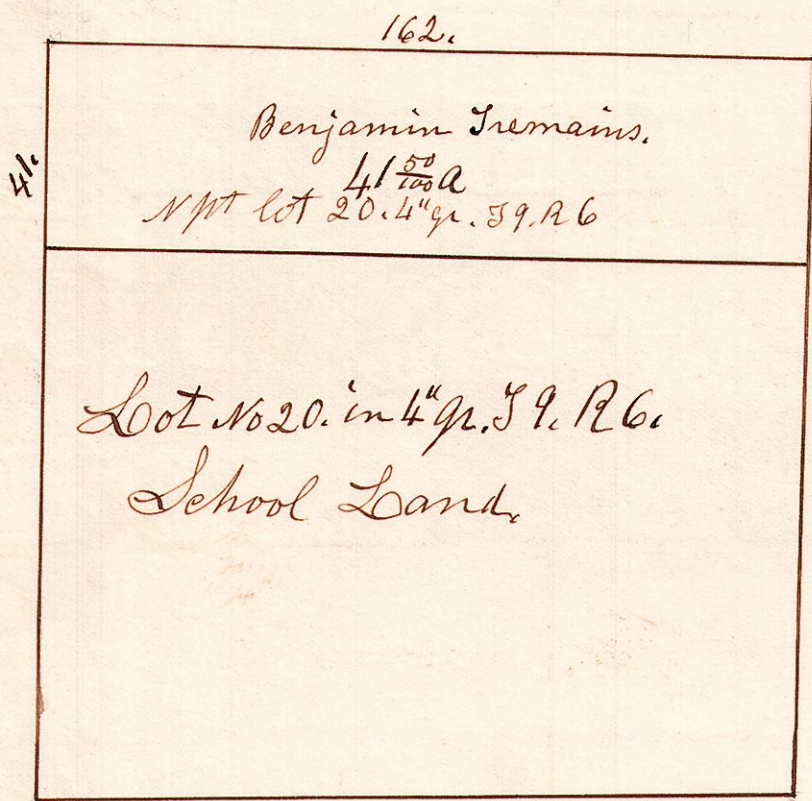 162.
41.
Benjamin Tremains.
41 50/100 a
N pt lot 20. 4" qr. T 9. R 6
Lot No 20. in 4" qr. T 9. R 6.
School Land.